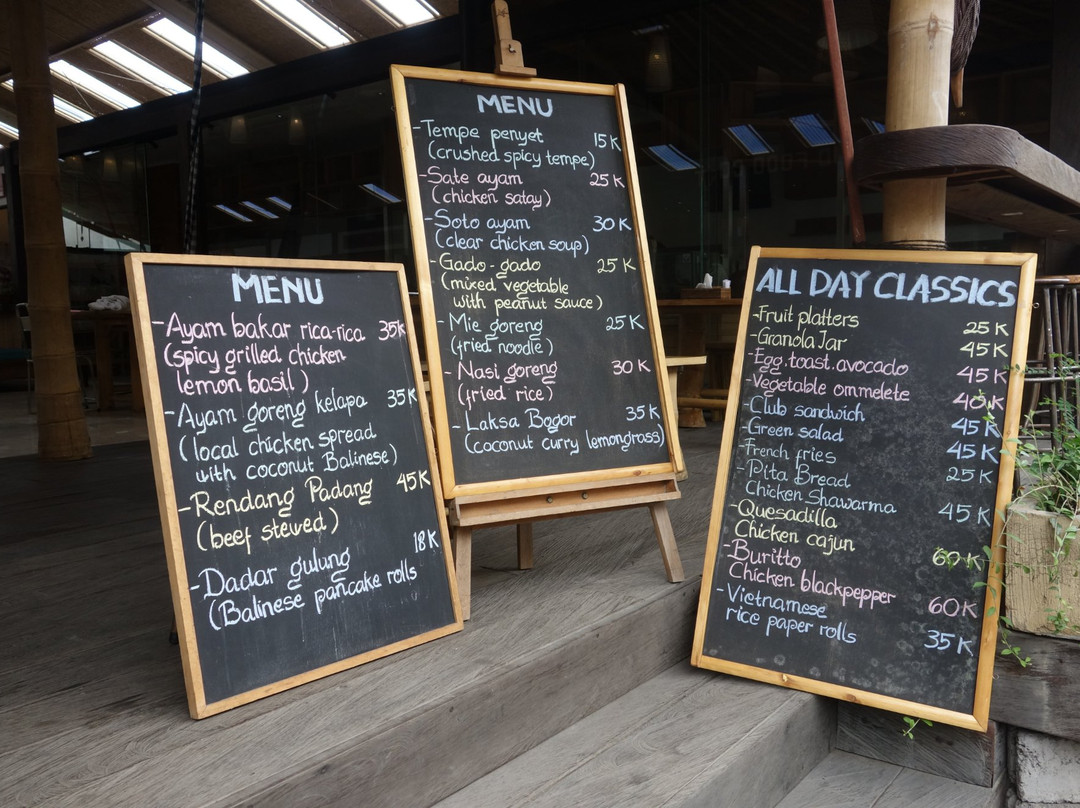 MENU
- Ayam bakar rica-rica 35K
(spicy grilled chicken
lemon basil)
- Ayam goreng kelapa 35K
(local chicken spread
with coconut Balinese)
- Rendang Padang 45K
(beef stewed)
- Dadar gulung 18K
(Balinese pancake rolls
MENU
- Tempe penyet 15K
(crushed spicy tempe)
- Sate ayam 25K
(chicken satay)
- Soto ayam 30K
(clear chicken soup)
- Gado-gado 25K
(mixed vegetable
with peanut sauce)
- Mie goreng 25K
(fried noodle)
- Nasi goreng 30K
(fried rice)
- Laksa Bogor 35K
(coconut curry lemongrass)
ALL DAY CLASSICS
- Fruit platters 25K
- Granola Jar 45K
- Egg.toast.avocado 45K
- Vegetable ommelete 40K
- Club sandwich 45K
- Green salad 45K
- French fries 25K
- Pita Bread
Chicken Shawarma 45K
- Quesadilla
Chicken cajun 60K
- Buritto
Chicken blackpepper 60K
- Vietnamese
rice paper rolls 35K